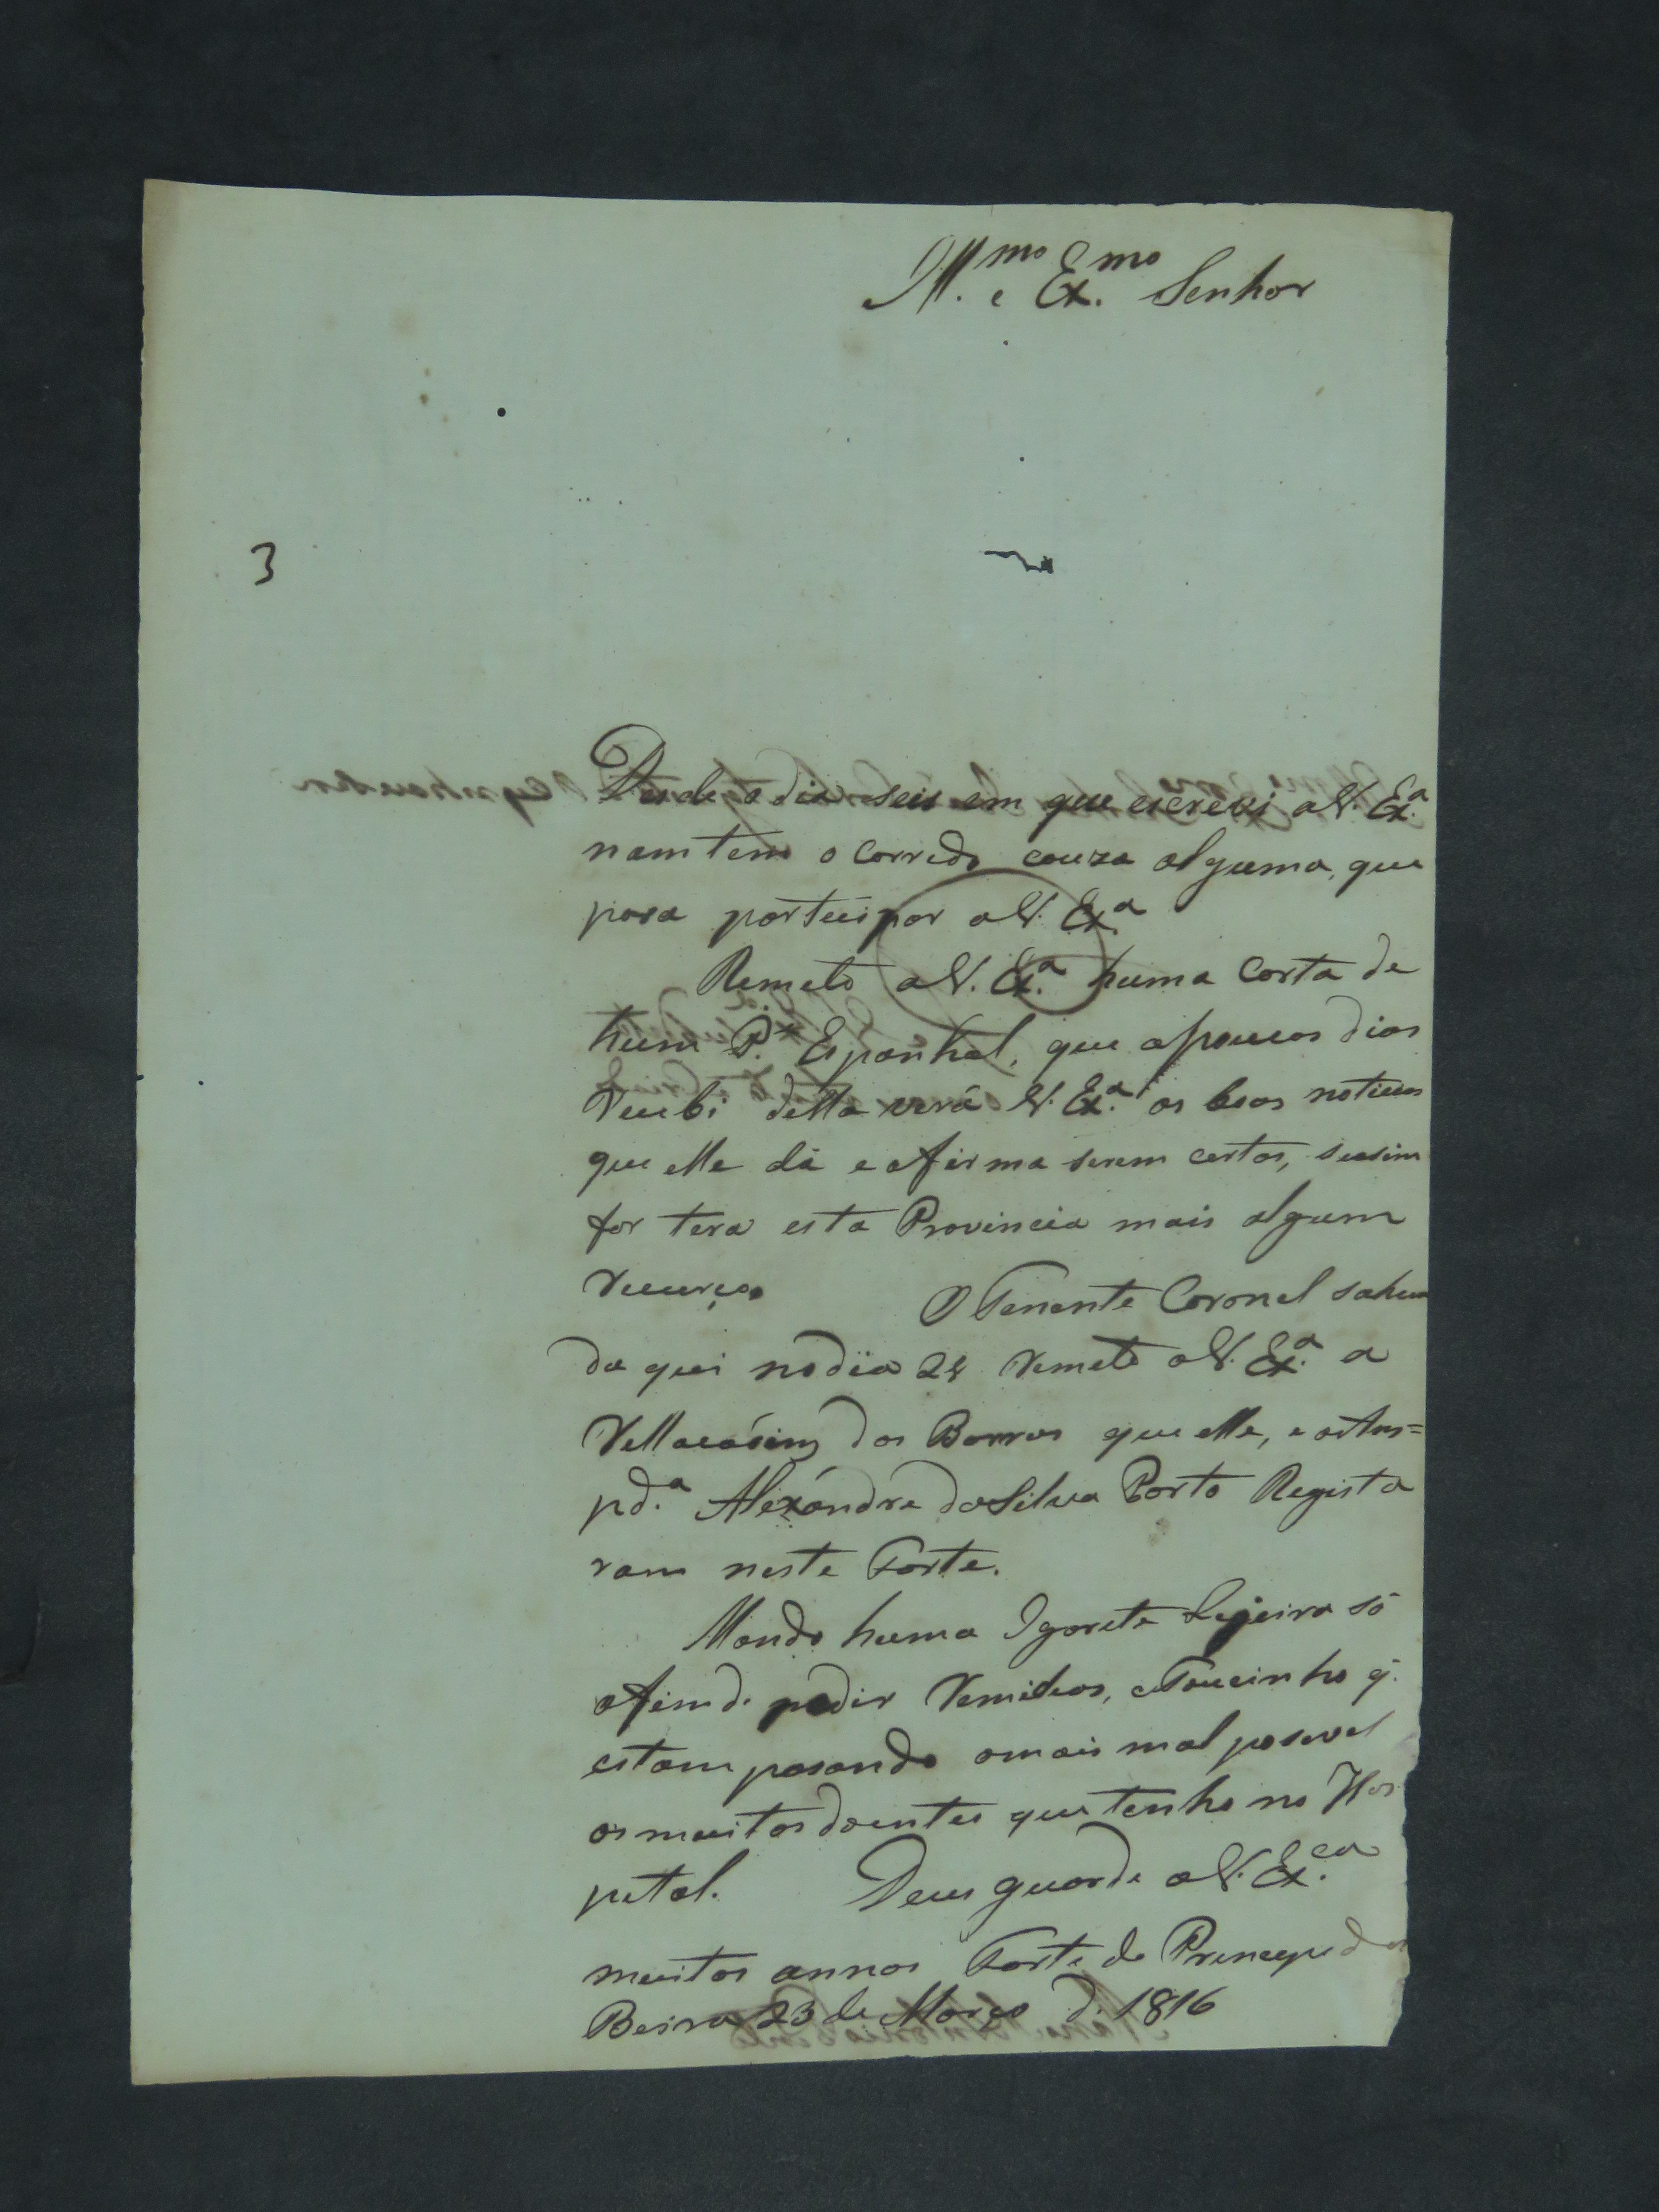 Ill.mo e Ex.mo Senhor
3
Desde o dia seis em que escrevi a V. Ex.a
nam tem o corrido couza alguma, que
posa partecipar a V. Ex.a
Remeto a V. Ex.a huma Carta de
hum P.e Espanhol, que a poucos dias
recebi della verá V. Ex.a as boas noticias
que elle dá e afirma serem certas, seasim
for tera esta Provincia mais algum
recurço O Tenente Coronel sahio
da qui no dia 28 remeto a V. Ex.a a
Rellacásim dos Barras que elle, e o Ans=
pd.a Alexándre da Silva Porto Regista
ram neste Forte.
Mando huma Igarite Ligeira só
afim de pedir remedios, e Toucinho q.
estam pasando o mais mal posevel
os muitos doentes que tenho no Hos
petal. Deus guarde a V. Ex.ca
muitos annos Forte do Principe da
Beira 23 de Março d. 1816